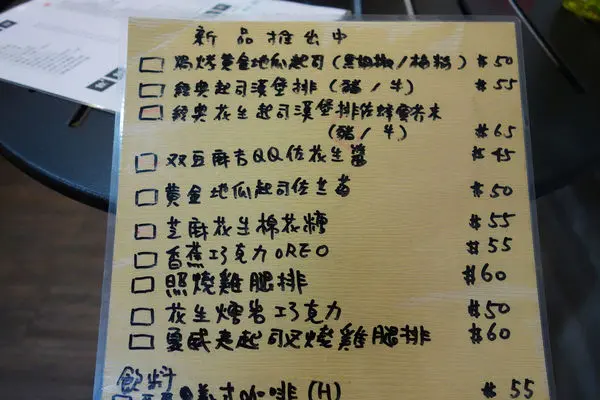 新品推出中
焗烤黃金地瓜起司(黑胡椒/梅粉) $50
經典起司漢堡排(豬/牛) $55
經典花生起司漢堡排佐蜂蜜芥末
(豬/牛) $65
双豆麻吉QQ佐花生醬 $45
黃金地瓜起司佐 $50
芝麻花生棉花糖 $55
香蕉巧克力OREO $55
照燒雞腿排 $60
花生燻岩巧克力 $50
夏威夷起司照燒雞腿排 $60
飲料
義式咖啡(H) $55